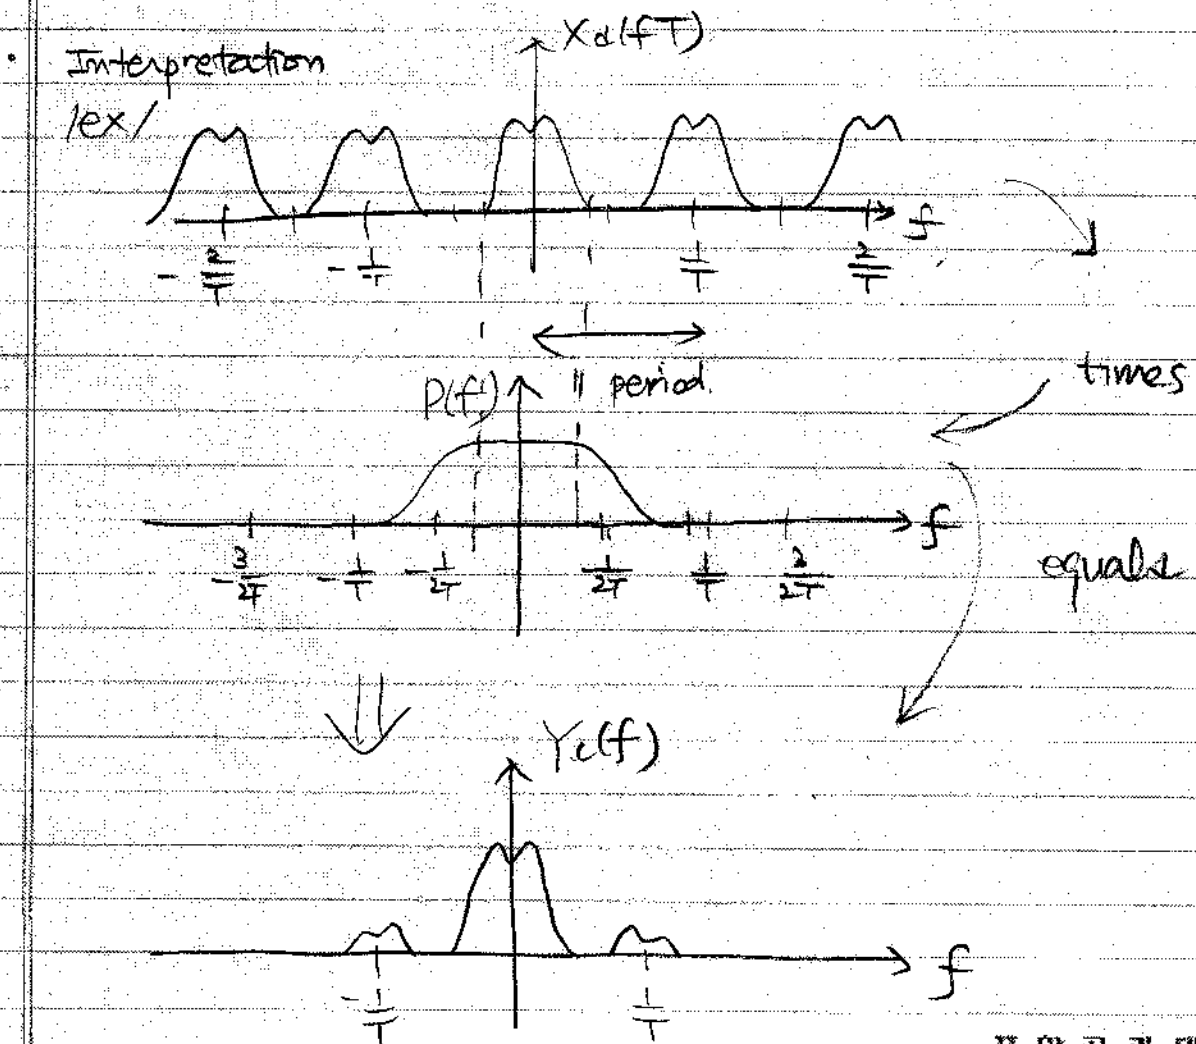 • Interpretation
X_d(fT)
/ex/
f
-2/T -1/T 1/T 2/T
period.
times
P(f)
f
-3/2T -1/T -1/2T 1/2T 1/T 3/2T
equals
Y_c(f)
f
-1/T 1/T